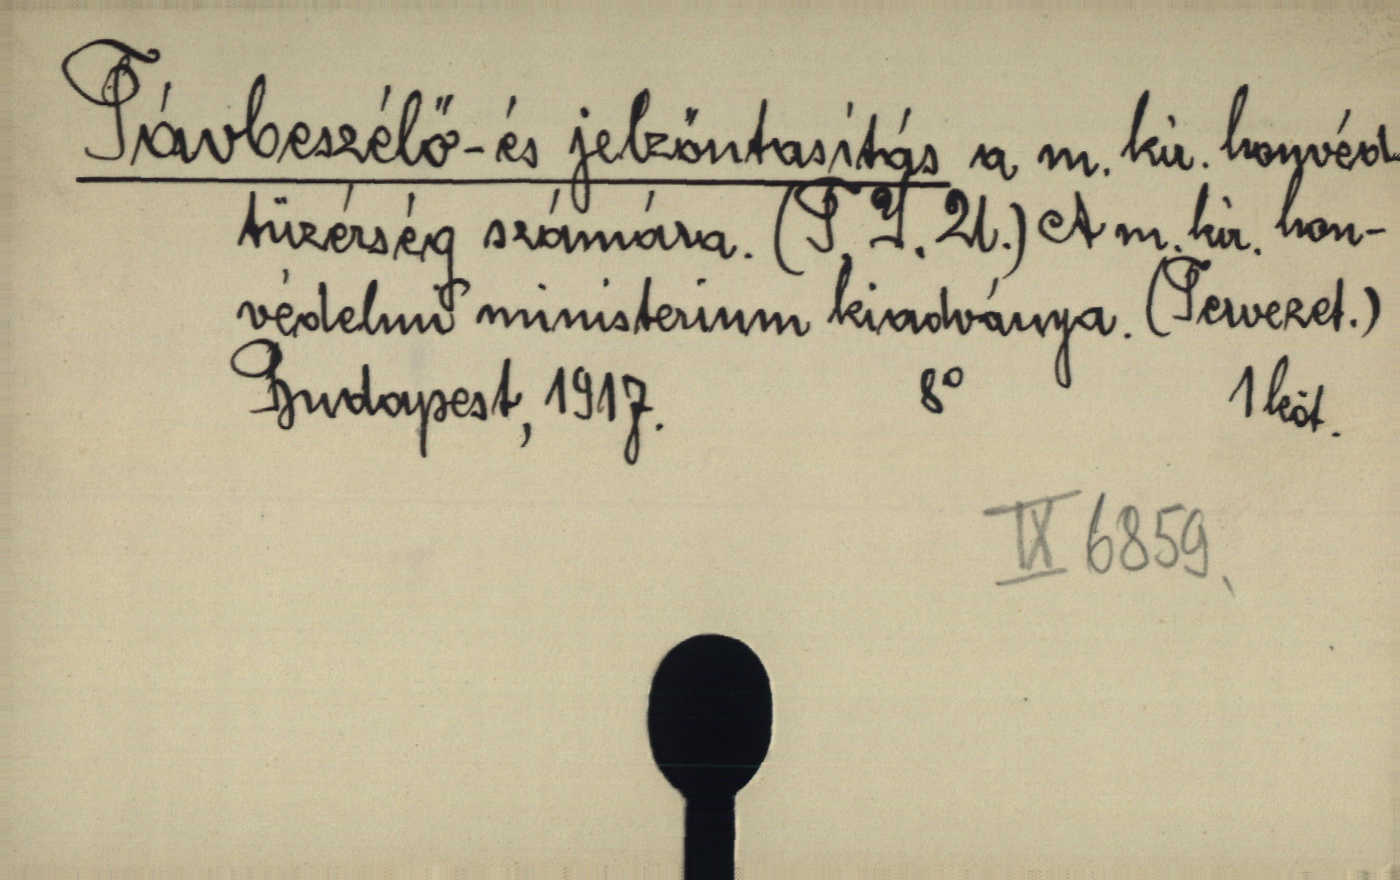 Távbeszélő-és jelzőutasítás a m. kir. honvéd-
tüzérség számára. (T. J. U.) A m. kir. hon-
védelmi ministerium kiadványa. (Tervezet.)
Budapest, 1917. 8° 1 köt.
IX 6859.